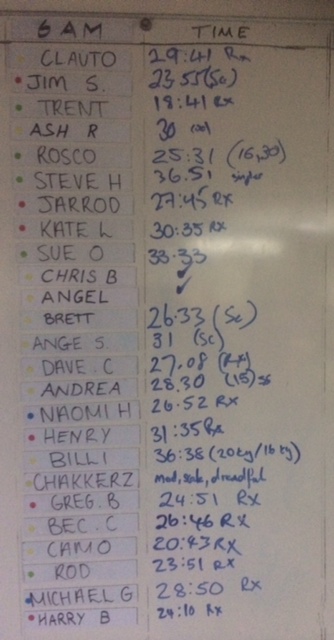 6AM TIME
CLAUTO 29:41 Rx
JIM S. 23.55 (Sc)
TRENT 18:41 Rx
ASH R 30
ROSCO 25:31 (16,30)
STEVE H 36.51 singles
JARROD 27:45 Rx
KATE L 30:35 Rx
SUE O 33.33
CHRIS B ✓
ANGEL ✓
BRETT 26.33 (Sc)
ANGE S. 31 (Sc)
DAVE.C 27.08 (Rx)
ANDREA 28.30 (15)
NAOMI H 26.52 Rx
HENRY 31:35 Rx
BILLI 36:38 (20kg/16kg)
CHAKKERZ mod, scale, dreadful
GREG.B 24:51 Rx
BEC.C 26:46 Rx
CAMO 20:43 Rx
ROD 23:51 Rx
MICHAEL G 28:50 Rx
HARRY B 24:10 Rx